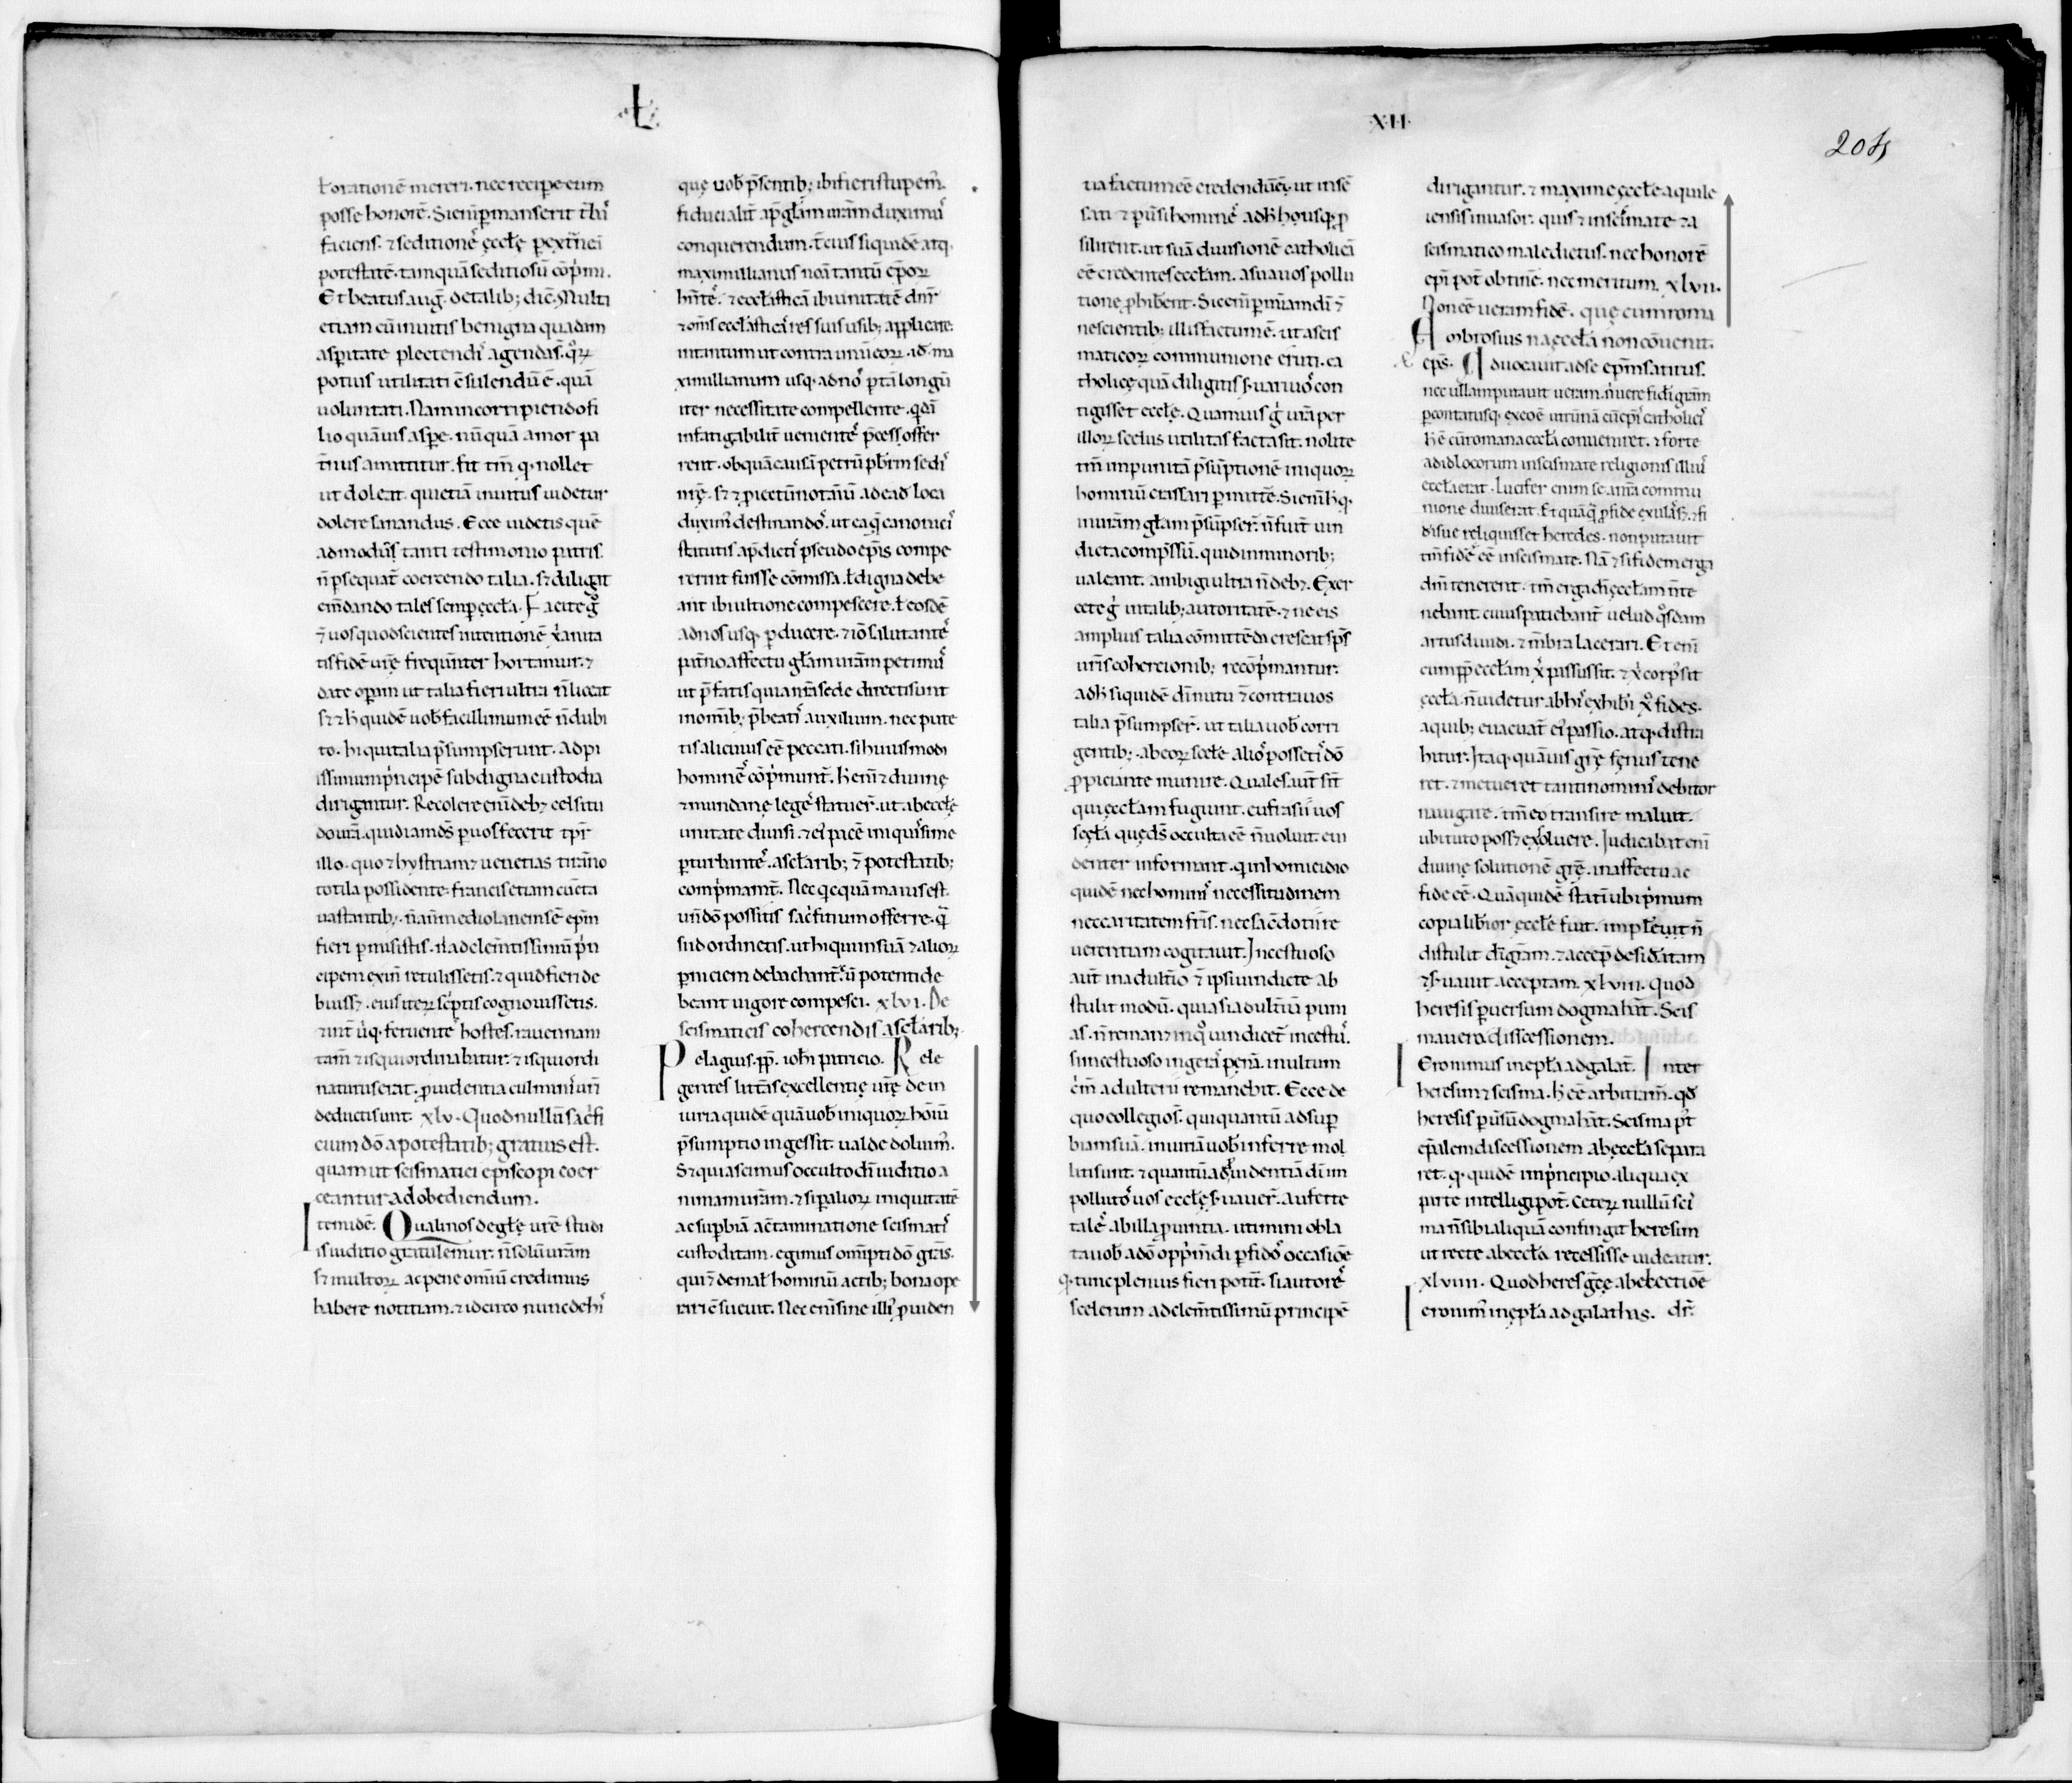 Ł
ł orationē mereri. nec recipe cum
posse honorē. Si enī p̄manserit t̄bā
faciens. ⁊ seditionē ęcclę p̄ extn̄ci
potestatē. tamquā seditiosū cōpmi.
Et beatus auḡ. de talib; dic̄. Multi
etiam cū inuitis benigna quadam
asp̄itate plectendi agenda s̄. quoꝝ
potius utilitati c̄sulendū ē. quā
uoluntati. Nam in corripiendo fi
lio quāuis asp̄e. nū quā amor pa
t̄nus amittitur. fit tm̄ q. nollet
ut doleat. qui etiā inuitus uidetur
dolere sanandus. Ecce uidetis quē
admodū s̄ tanti testimonio patris.
n̄ p̄sequat̄ coercendo talia. sꝫ diligit
em̄dando tales semp̄ ęccła. Facite g̊
⁊ uos quod scientes intentionē xp̄iani
tis fidē urę frequn̄ter hortamur. ⁊
date operam ut talia fieri ultra n̄ liceat
sꝫ ⁊ h̄ quidē uob̄ facillimum eē n̄ dubi
to. hi qui talia p̄sumpserunt. ad pi
issimum p̄ncipē sub digna custodia
dirigantur. Recolere enī debꝫ celsitu
do ura. quid iam ds̄ p̄ uos fecerit tp̄r
illo. quo ⁊ hystriam ⁊ uenetias tirān̄o
totila possidente. francis etiam cuncta
uastantib;. n̄ an̄ mediolanensē ep̄m
fieri p̄misistis. n̄ ad clem̄tissimū p̄n
cipem exin̄ retulissetis. ⁊ quid fieri de
buissꝫ. eius iteꝝ sc̄ptis cognouissetis.
⁊ int̄ u̇q. feruente hostes. rauennam
tam̄ ⁊ is qui ordinabatur. ⁊ is qui ordi
naturus erat. p̄uidentia culminī urī
deducti sunt. xlv. Quod nullū sac̄fi
cium dō a potestatib; gratius est.
quam ut scismatici episcopi coer
ceantur ad obediendum.
Item idē. Qualī nos de gła urē studi
is iuditio gratulemur. n̄ solū uram
sꝫ multoꝝ ac pene omīū credimus
habere notitiam. ⁊ idcirco nunc de hī
quę uob̄ p̄sentib; ibi fieri stupem̄.
fiducialit̄ ap̄ głam uram duximꝰ
conquerendum. t̄cius siquidē atq.
maximillianus noīa tantū ep̄oꝝ
hn̄tē. ⁊ eccłasticā ibi unitatē dnr̄
⁊ om̄s ecclasticā res suis usib; applicare.
intantum ut contra unū eoꝝ. id. ma
ximillianum usq. ad nō p̄ tā longū
iter necessitate compellente. qdā
infatigabilit̄ uenientē p̄cess offer
rent. ob quā causā petrū pb̄rm sedī
nr̄ę. sꝫ ⁊ p̄iectū notariū ad ead loca
duxim̄ destinandō. ut ea q̄ canonicī
statutis ap̄ dictī pseudo ep̄is compe
rerint fuisse cōmissa. ł digna debe
ant ibi ultione compescere. ł eosdē
ad nos usq. p̄ducere. ⁊ iō salutantē
pat̄no affectu głam uram petimꝰ
ut p̄fatis qui a nr̄a sede directi sunt
in omīb; p̄beatī auxilium. nec pute
tis alicuius eē peccati. si huiusmodi
hominē cōpmunt̄. h̄ enī ⁊ diuinę
⁊ mundanę legē statuer̄. ut ab ecclę
unitate diuisi. ⁊ eī pacē iniquissime
p̄turbantē. a sclārib; ⁊ potestatib;
comp̄mant̄. Nec qcquā maius est.
un̄ dō possitis sac̄ficium offerre. q̄
si id ordinetis. ut hi qui in suā ⁊ alioꝝ
p̄niciem debachant̄. ū potenti de
beant uigore compesci. xlvi. De
scismaticis cohercendis a sclārib;.
Pelagius. pp. ioh̄i patricio. Rele
gentes litt̄as excellentię urę. de in
iuria quidē quā uob̄ iniquoꝝ homī
p̄sumptio ingessit. ualde doluim̄.
Sꝫ quia scimus occulto dī iuditio a
nimam uram. ⁊ si p̄ alioꝝ iniquitatē
ac sup̄biā a c̄taminatione scismatī
custoditam. egimus omp̄ti dō grās.
qui ⁊ de mał hominū actib; bona ope
rari c̄sueuit. Nec enī sine illī p̄uiden
XII
204
tia factum eē credendū ē. ut insē
sati ⁊ p̄ūsi hominē ad h̄ housq. p̄
silirent. ut suā diuisionē catholicā
eē credentes eccłam. a suauos pollu
tione p̄hiberent. Sic enī p̄ miram dī ⁊
nescientib; illis factum ē. ut a scis
maticoꝝ communione eruti. ca
tholicę quā diligitis s̄uaruō con
tigisset ecclę. Quamuis g̊ ura per
illoꝝ scelus utilitas facta sit. nolite
tm̄ impunitā p̄sūptionē iniquoꝝ
hominū crassari p̄mittē. Si enī h̄ q.
in uram głam p̄sūpser̄. n̄ fuit̄ uin
dicta comp̄ssū. quid in minorib;
ualeant. ambigi ultra n̄ debꝫ. Exer
cete g̊ in talib; autoritatē. ⁊ ne eis
amplius talia cōmittēdi crescat sp̄s
uris cohercionib; recōp̄mantur.
ad h̄ siquidē dī nutu ⁊ contra uos
talia p̄sumpser̄. ut talia uob̄ corri
gentib;. ab eoꝝ scelē aliō possetī dō
p̄piciante munire. Quales aut̄ sīt
qui ęccłam fugiunt. eufrasiī uos
scęłā quę ds̄ occulta eē n̄ uoluit. eui
denter informant. q in homicidio
quidē nec hominī necessitudinem
nec caritatem fr̄is. nec sacēdotū re
uerentiam cogitauit. Incestuoso
aut̄ in adultīo ⁊ ipsi uindicte ab
stulit modū. quia si adult̄iū puni
as. n̄ remanꝫ in qō uindicet̄ incestū.
si incestuoso ingerā penā. inultum
cīm adulterii remanebit. Ecce de
quo collegio s̄. qui quantū ad sup̄
biam suā. iniuriā uob̄ inferre mol
liti sunt. ⁊ quantū ad p̄uidentiā dī im
pollutō uos ecclę s̄uauer̄. auferte
talē ab illa p̄uintia. utimini obla
ta uob̄ a dō opp̄mdi p̄fidō occasiōe
q. tunc plenius fieri potit̄. si autorē
scelerum ad clem̄tissimū principē
dirigantur. ⁊ maxime ęccłe aquile
iensis inuasor. qui s̄ ⁊ in scismate ⁊ a
scismatico maledictus. nec honorē
ep̄i pot̄ obtinē. nec meritum. xlvii.
Non eē ueram fidē. quę cum roma
na ęccła non cōuenit.
Ambrosius
ep̄s. Aduocauit ad se ep̄m satirus.
nec ullam putauit ueram. n̄ uere fidī grām
p̄contatusq. ex eo ē. utrūnā cū ep̄ī catholicī
h̄ ē cū romana eccłā conueniret. ⁊ forte
ad id locorum in scismate religionis illiī
eccła erat. Lucifer enim se a nr̄a commu
nione diuiserat. Et quāq̄ p̄ fide exulassꝫ. ⁊ fi
di sue reliquisset heredes. non putauit
tm̄ fidē eē in scismate. Nā ⁊ si fidem erga
dm̄ tenerent. tm̄ erga dī ęccłam n̄ te
nebant. cuius patiebant̄ uelud qōsdam
artus diuidi. ⁊ m̄bra lacerari. Et enī
cum pp̄ eccłam xp̄ passus sit. ⁊ xp̄ corp̄ sit
ęccła. n̄ uidetur ab hī exhib̄i xō fides.
a quib; euacuat̄ eī passio. atq. distra
hitur. Itaq. quāuis grę fenus tene
ret. ⁊ metueret tanti nominī debitor
nauigare. tm̄ eo transire maluit.
ubi tuto possꝫ exsoluere. Iudicabat enī
diuinę solutionē grę. in affectu ac
fide eē. Quā quidē statī ubi p̄imum
copia lib̄ior ęccłe fuit. implēuit n̄
distulit dī grām. ⁊ accep̄ desid̄atam
⁊ s̄uauit acceptam. xlviii. Quod
heresis p̄uersum dogma hāt. Scis
ma uera discessionem.
Ieronimus in ep̄ła ad galat̄. Inter
heresim ⁊ scisma. h̄ eē arbitram̄. qd
heresis p̄ūsū dogma hāt. Scisma p̄t
ep̄alem discessionem ab ęccła separa
ret. q. quidē in p̄ncipio. aliqua ex
parte intelligi pot̄. Ceteꝝ nullū scī
ma n̄ sibi aliquā confingit heresim
ut recte ab eccła recessisse uideatur.
xlviiii. Quod heres grece ab electiōe
dr̄.
Ieronim̄ in ęp̄ła ad galathas.